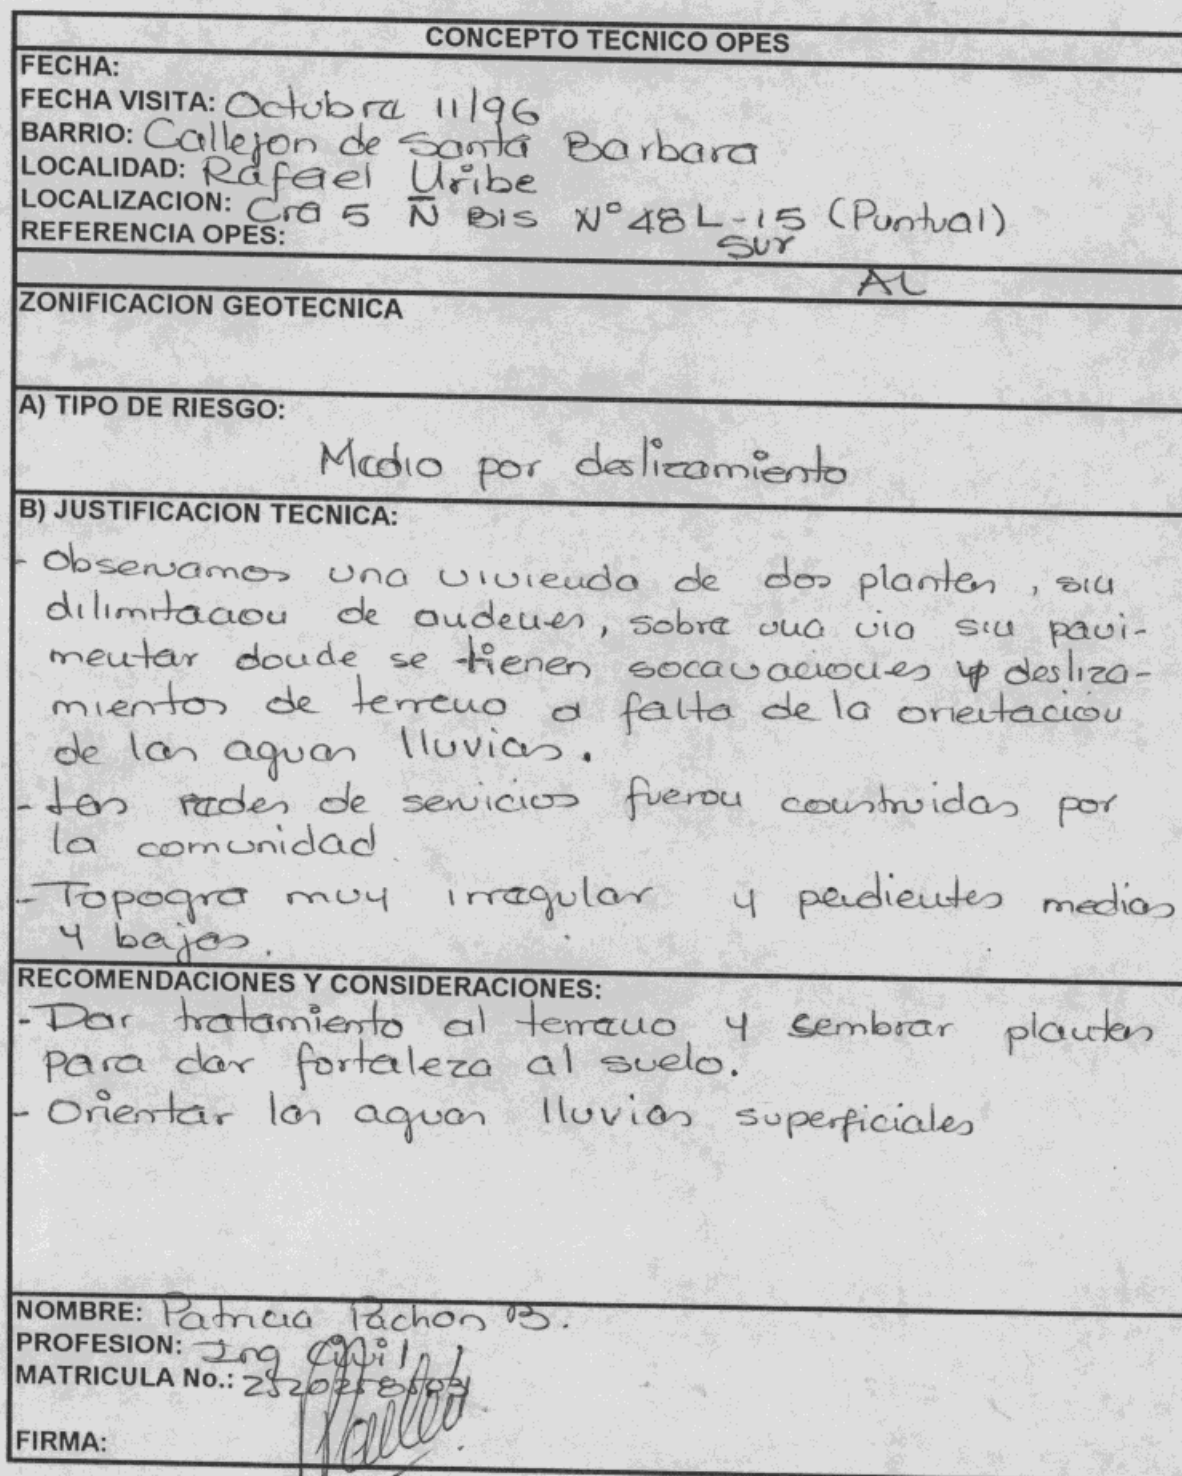 CONCEPTO TECNICO OPES
FECHA:
FECHA VISITA: Octubre 11/96
BARRIO: Callejon de Santa Barbara
LOCALIDAD: Rafael Uribe
LOCALIZACION: Cra 5 N Bis N° 48 L-15 (Puntual)
Sur
REFERENCIA OPES:
AL
ZONIFICACION GEOTECNICA
A) TIPO DE RIESGO:
Medio por deslizamiento
B) JUSTIFICACION TECNICA:
- Observamos una vivienda de dos plantas, sin
dilimitacion de andenes, sobre una via sin pavi-
mentar donde se tienen socavaciones y desliza-
mientos de terreno a falta de la orientacion
de las aguas lluvias.
- Las redes de servicios fueron construidas por
la comunidad
- Topogra muy irregular y pedientes medias
y bajas.
RECOMENDACIONES Y CONSIDERACIONES:
- Dar tratamiento al terreno y sembrar plantas
para dar fortaleza al suelo.
- Orientar las aguas lluvias superficiales
NOMBRE: Patricia Pachon B.
PROFESION: Ing Civil
MATRICULA No.:
FIRMA: